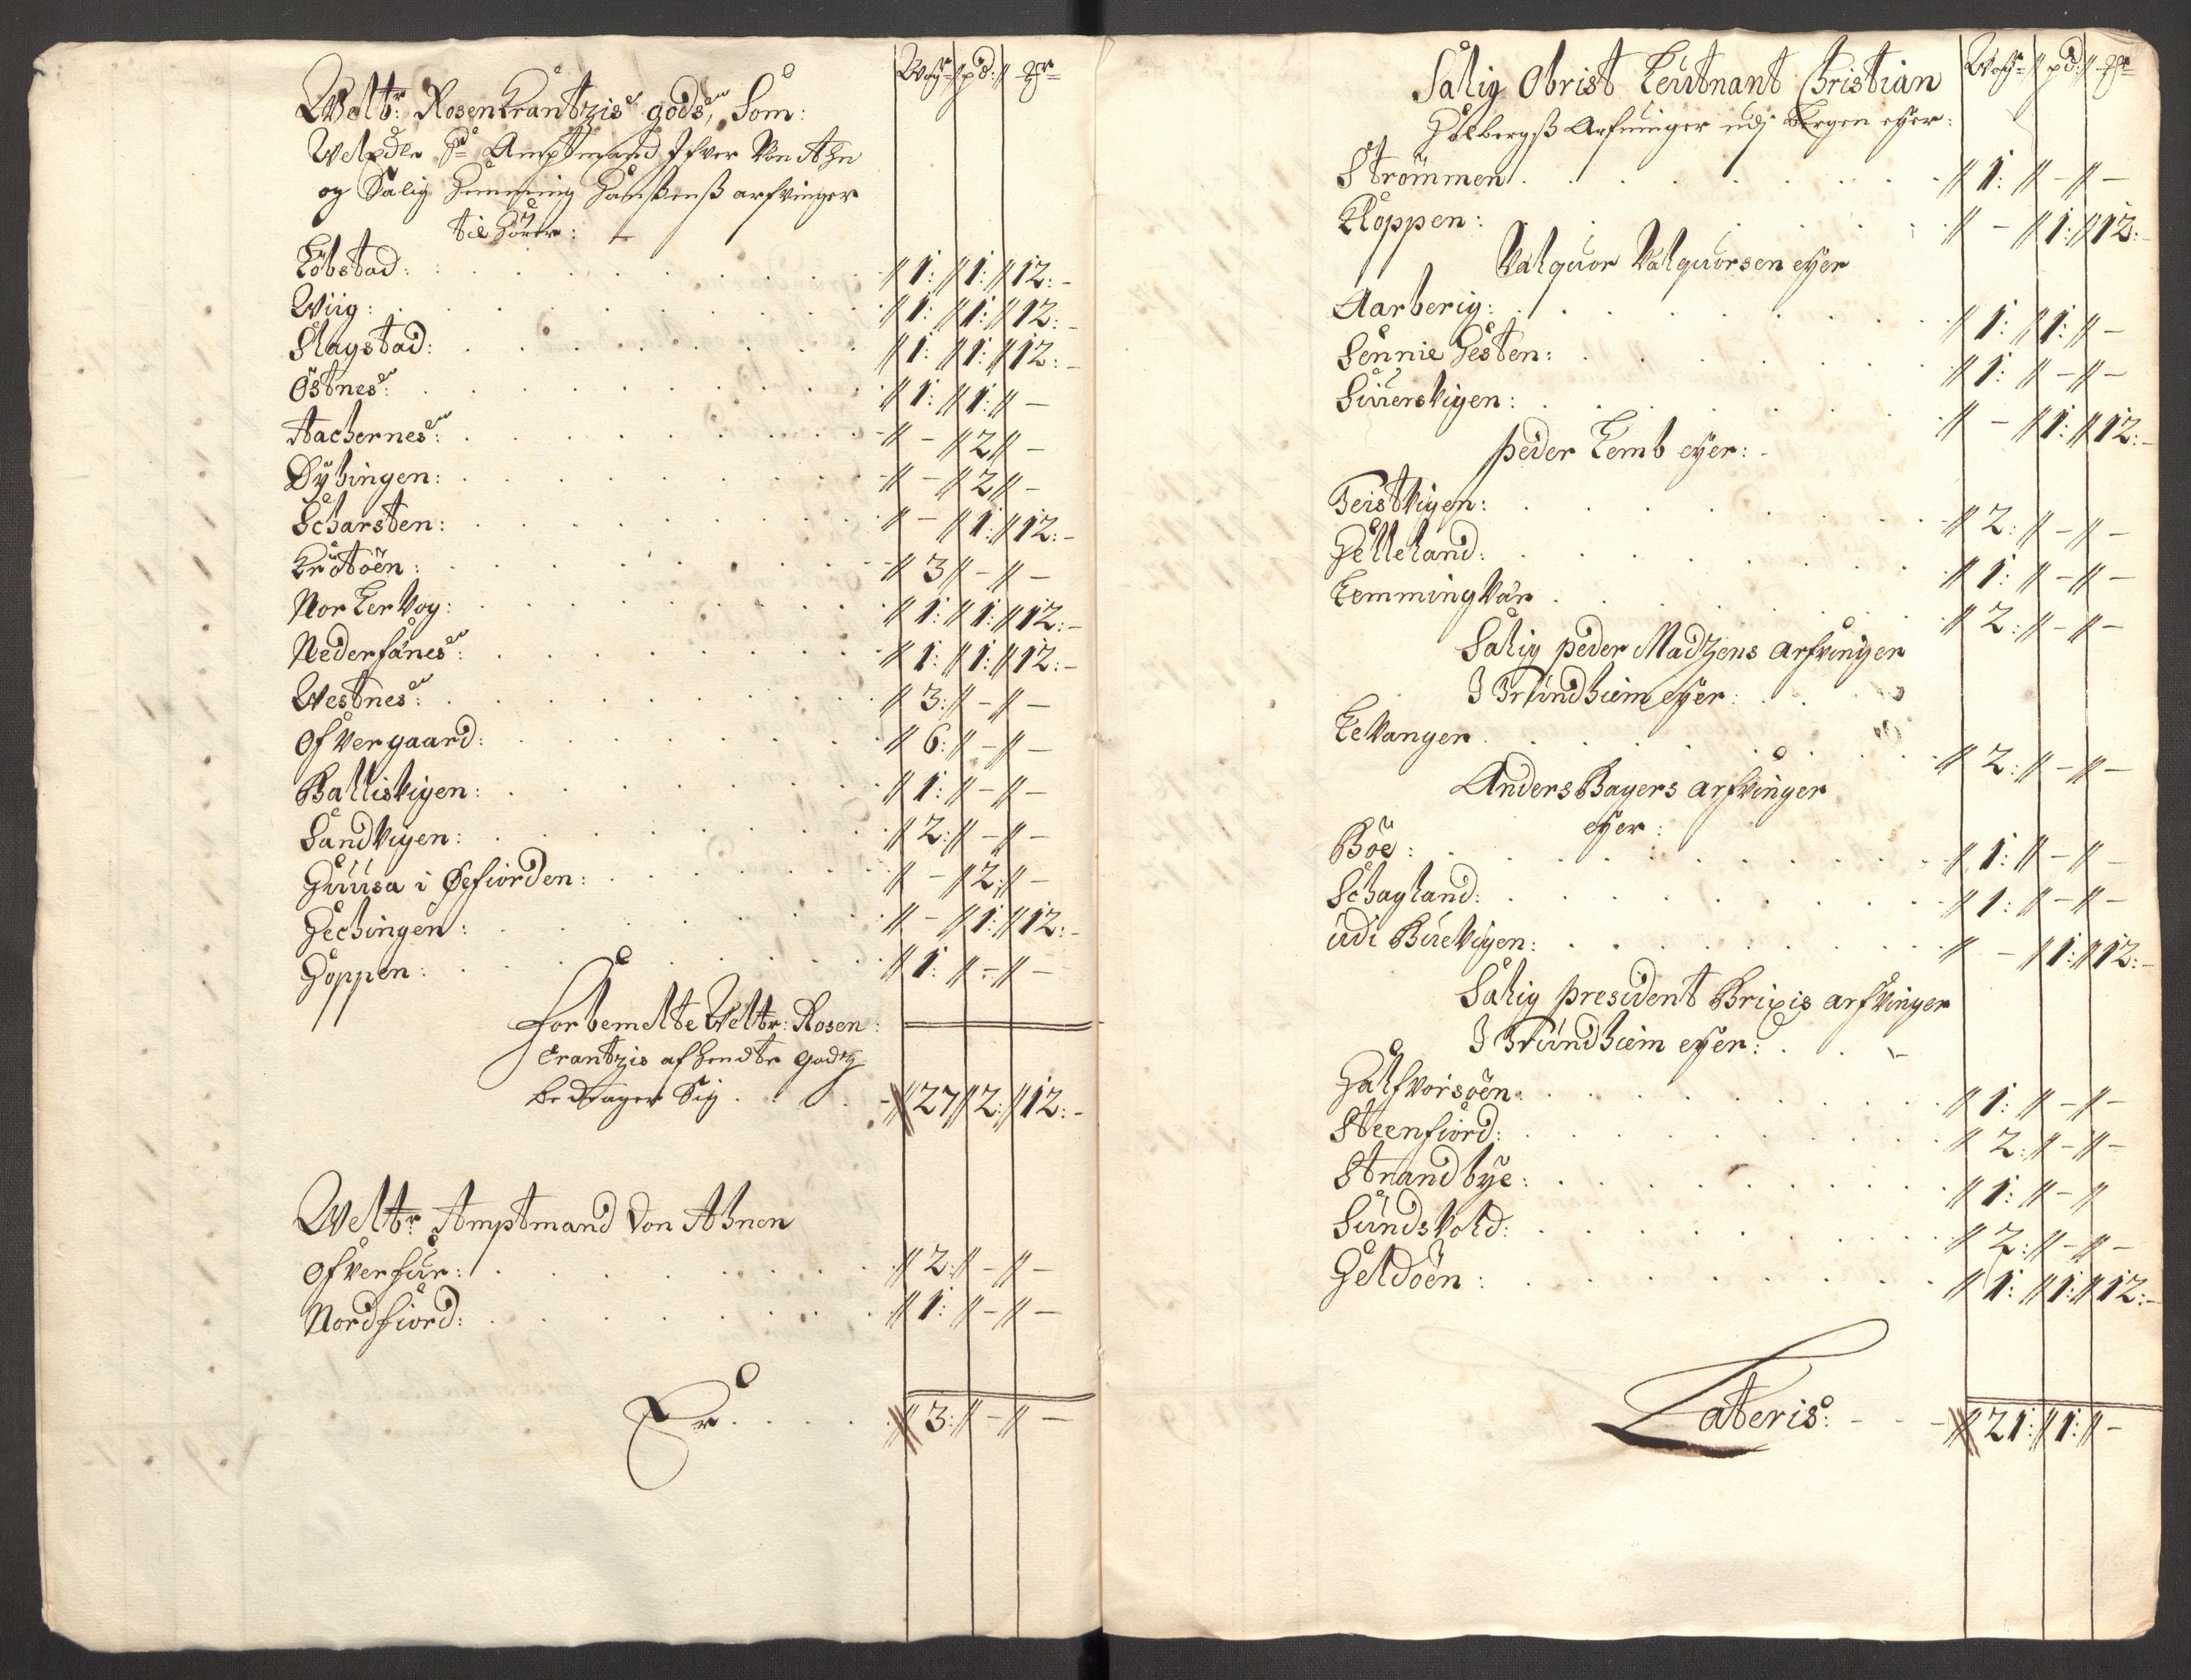 Wog: pd: mk
Weltr: Rosenkrantzis gods, Som:
WelEdle Hr Amptmand Ifver Von Ahn
og Salig Henning Hansens arfvinger
tilhører:
Købstad: 1: 1: 12:
Wiig: 1: 1: 12:
Slagstad: 1: 1: 12:
Østnes: 1: 1: -
Aachernes: - 2 -
Dybingen: - 2 -
Scharsten: - 1: 12:
Krøttøen: 3 - -
Nor Lervog: 1: 1: 12:
Nederfånes: 1: 1: 12:
Westnes: 3: - -
Ofvergaard: 6: - -
Ballisvigen: 1: - -
Sandvigen: 2: - -
Huusa i Øefiorden: - 2: -
Hechingen: - 1: 12:
Hoppen: 1: - -
Forbemelte Weltr: Rosen:
Krantzis afhendte Godtz
bedrager Sig 27 2: 12:
Weltr Amptmand Von Ahnen
Ofverhur: 2: - -
Nordfiord: 1: - -
Er 3: - -
Wog: pd: mk
Salig Obrist Leutnant Christian
Holbergs Arfvinger udj Bergen eyer:
Strømmen 1: - -
Kloppen: - 1: 12:
Valquor Valquorsen eyer
Aarberig: 1: 1: -
Sennie Hesten: 1: - -
Siuersvigen: - 1: 12:
Peder Lemb eyer:
Teistvigen: 2: - -
Helleland: 1: - -
Lemmingvår 2: - -
Salig Peder Madtzens arfvinger
I Trundhiem eyer:
Levanger 2: - -
Anders Bayers arfvinger
eyer:
Bøe: 1: - -
Schagland: 1: - -
udi Buevigen: - 1: 12:
Salig President Brixis arfvinger
I Trundhiem eyer:
Halfvorsøen: 1: - -
Steenfiord: 2: - -
Strandbye: 1: - -
Sundsvold: 2: - -
Heldøen: 1: 1: 12:
Lateris: 21: 1: -